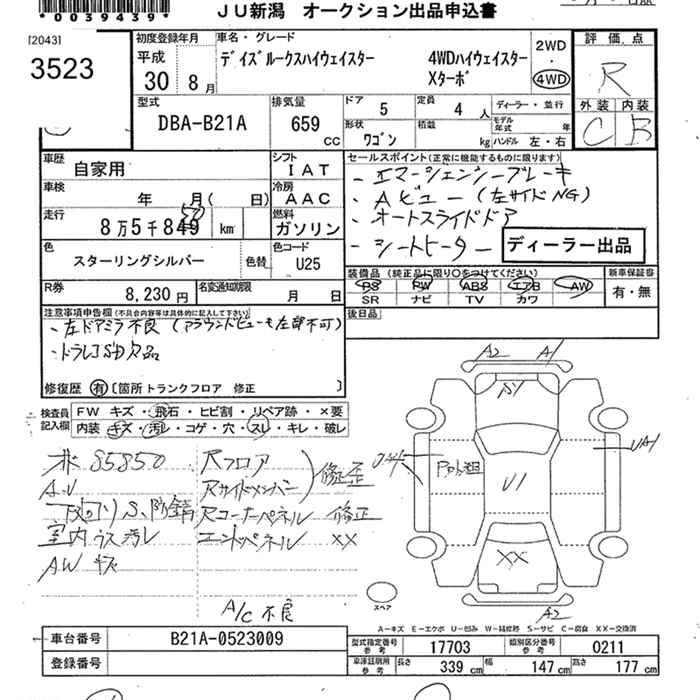 *0039439*
JU新潟 オークション出品申込書
[2043]
3523
初度登録年月
平成
30 年 8 月
車名・グレード
デイズルークスハイウェイスター
4WDハイウェイスター
Xターボ
2WD
4WD
評価点
R
外装 内装
C B
型式
DBA-B21A
排気量
659 CC
ドア 5
定員 4 人
ディーラー・並行
形状 ワゴン
積載 kg
モデル年式 年
ハンドル 左・右
車歴 自家用
シフト IAT
車検 年 月( 日)
冷房 AAC
走行 8万5千849 50 km
燃料 ガソリン
色 スターリングシルバー 色替
色コード U25
R券 8,230円
名変通知期限 月 日
セールスポイント(正常に機能するものに限ります)
・エマージェンシーブレーキ
・Aビュー(左サイドNG)
・オートスライドドア
・シートヒーター
ディーラー出品
装備品(純正品に限り○をつけてください)
PS PW ABS エアB AW
SR ナビ TV カワ
新車保証書
有・無
後日品
注意事項申告欄(不具合内容等は具体的に記入して下さい)
・左ドアミラ不良(アラウンドビューも左部不可)
・ドラレコSD欠品
修復歴 有 [箇所 トランクフロア 修正 ]
検査員
記入欄
FW キズ・飛石・ヒビ割・リペア跡・×要
内装 キズ・汚レ・コゲ・穴・スレ・キレ・破レ
85850
A・U
下回り S、防錆
室内 ウス汚レ
AW キズ
Rフロア
Rサイドメンバー
修正歪
Rコーナーパネル 修正
エンドパネル XX
A/C 不良
A2 A1
A1
UA1
U1
XX
A2
スペア
A-キズ E-エクボ U-凹み W-補修跡 S-サビ C-腐食 XX-交換済
車台番号 B21A-0523009
登録番号
型式指定番号
参考
17703
類別区分番号
参考
0211
車庫証明用
参考
長さ 339 cm 幅 147 cm 高さ 177 cm